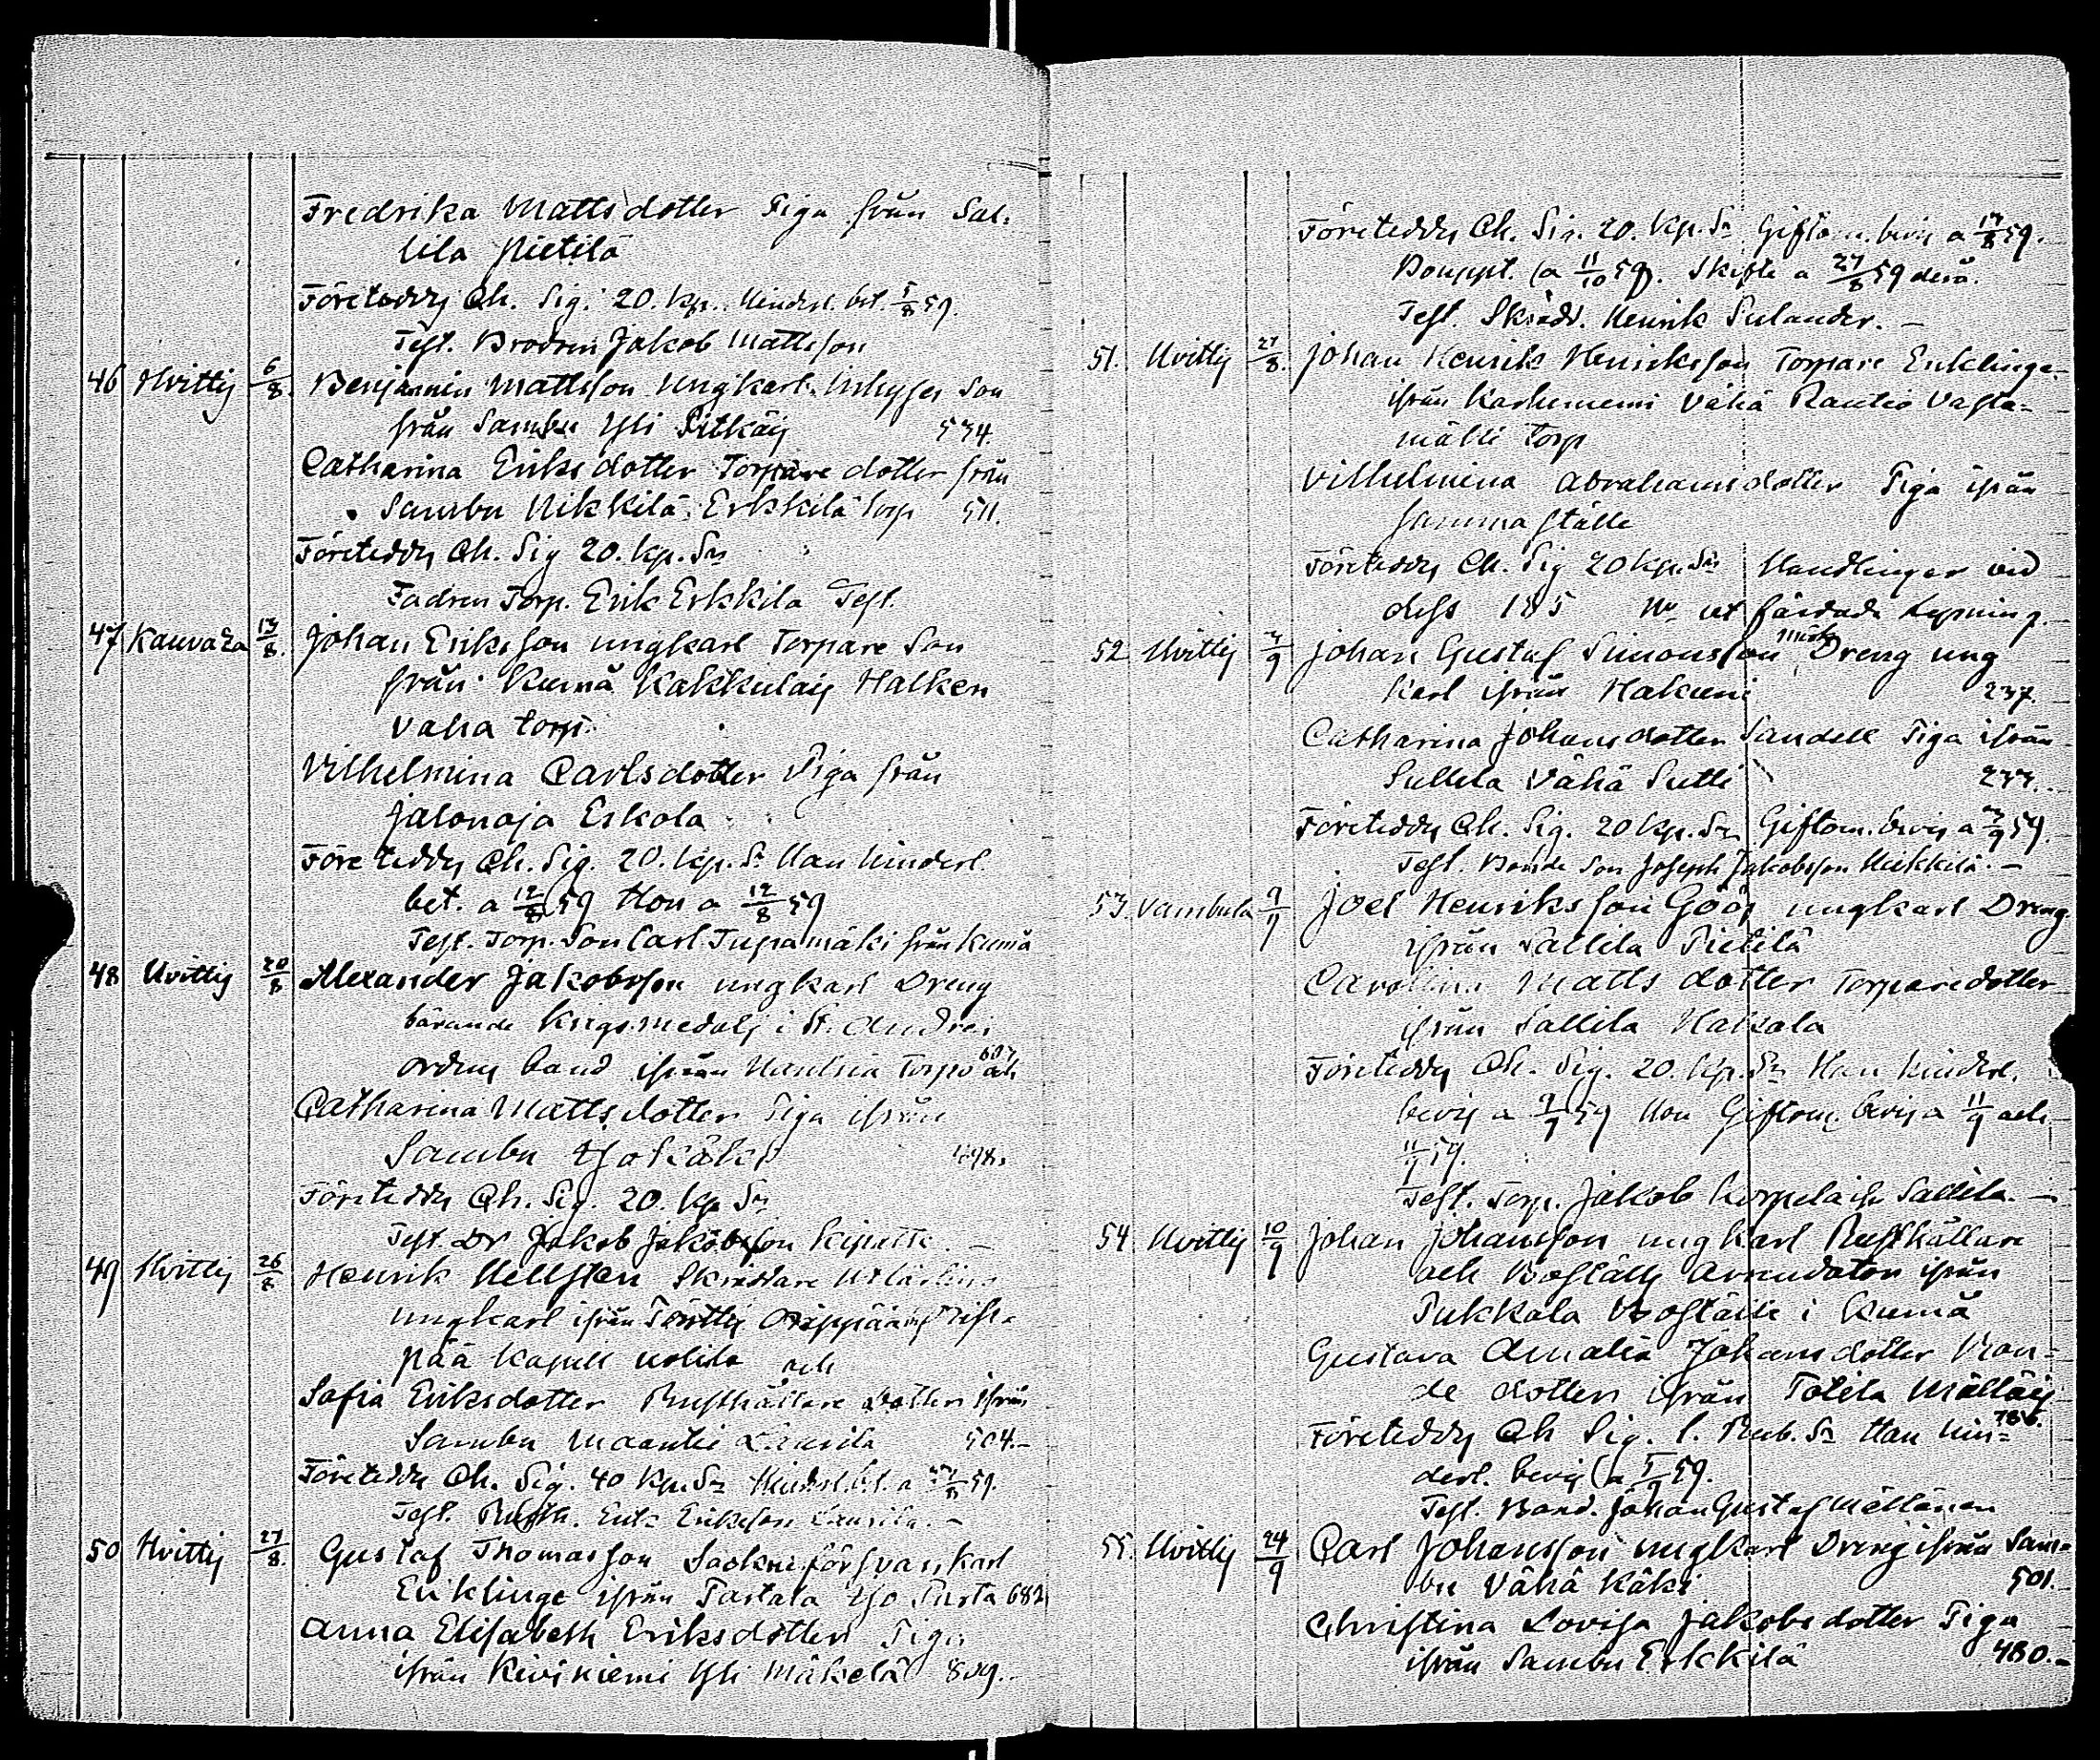 Fredrika Mattsdotter Piga från Sal-
lila Pietilä
Företeddes Ch. Sig. 20. kp. Hinderl. bet. 5/8 59.
Test. Brodren Jakob Mattsson
46 Hvittis 6/8. Benjamin Mattsson Ungkarl Inhyses Son
från Sambu Yli Pitkäis 534.
Catharina Eriksdotter Torpare dotter från
Sambu Nikkilä Erkkilä torp 511.
Företeddes Ch. Sig 20. kp. Sr
Fadren Torp. Erik Erkkila Test.
47 Kauvaza 13/8. Johan Eriksson ungkarl Torpare Son
från Kumå Kakkulais Halken
vaha torp.
Vilhelmina Carlsdotter Piga från
Jalonoja Eskola
Företeddes Ch. Sig. 20. kp. Sr Han hinderl.
bet. a 12/8 59 Hon a 12/8 59
Test. Torp. Son Carl Tupamäki från Kumå
48 Hvittis 20/8 Alexander Jakobsson ungkarl Dreng
bärande krigsmedalj i St. Andrei
ordens band ifrån Torpo och
Catharina Mattsdotter Piga ifrån
Sambu Yso Käki 498.
Företeddes Ch. Sig. 20. kp Sr
Test. Dr Jakob Jakobsson
49 Hvittis 26/8 Henrik Hellsten Skräddare
ungkarl ifrån Törttis Orippää
pää Kapell och
Sofia Eriksdotter Rusthållare dotter ifrån
Sambu Maantie Laurila 504.-
Företeddes Ch. Sig. 40 kp. Sr Hinderl. bet. a 59.
Test. Rusth. Erik Eriksson Laurila.-
50 Hvittis 27/8. Gustaf Thomasson Sockneförsvarskarl
Enklinge ifrån Tastala Yso Pasta 682
Anna Elisabeth Eriksdotter Piga
ifrån Kiviniemi Yli Mäkelä 809.-
Företeddes Ch. Sig. 20. kp. Sr Giftom. bevis a 17/8 59.
Bouppt. (a 11/10 59). Skifte a 27/8 59
Test. Skrädd. Henrik Sulander.-
51. Hvittis 27/8. Johan Henrik Henriksson Torpare Enklinge
ifrån Karhiniemi Vähä Rautio Vasta-
mälli torp
Vilhelmina Abrahamsdotter Piga ifrån
samma ställe
Företeddes Ch. Sig 20 kp. Sr Handlingar vid
dess 185 färdade lysning.
52 Hvittis 3/9 Johan Gustaf Simonsson Dreng ung
karl ifrån Hakuni 237.
Catharina Johansdotter Sandell Piga ifrån
Sullila Vähä Sutti 233.
Företeddes Ch. Sig. 20 kp. Sr Giftom. bevis a 3/9 59.
Test. Bonde Son Joseph Jakobsson Heikkilä.-
53. Vambula 9/9 Joel Henriksson Göös ungkarl Dreng
ifrån Sallila Pietilä
Carolina Mattsdotter Torparedotter
ifrån Sallila Hakala
Företeddes Ch. Sig. 20. kp. Sr Han hinderl.
bevis a 9/9 59 Hon Giftom. bevis a 11/9 och
11/9 59.
Test. Torp. Jakob Korpela ifr Sallila.-
54 Hvittis 10/9 Johan Johansson ungkarl Rusthållare
och Boställs Arendator ifrån
Pukkala Boställe i Kumå
Gustava Amalia Johansdotter Bon-
de dotter ifrån Potila Mälläis
786.
Företeddes Ch Sig. 1. Rub. Sr Han hin-
derl. bevis (a 5/9 59.
Test. Bond. Johan Gustaf Mällänen
55. Hvittis 24/9 Carl Johansson ungkarl Dreng ifrån Sam-
bu Vähä Käki 501.-
Christina Lovisa Jakobsdotter Piga
ifrån Sambu Erkkilä 480.-